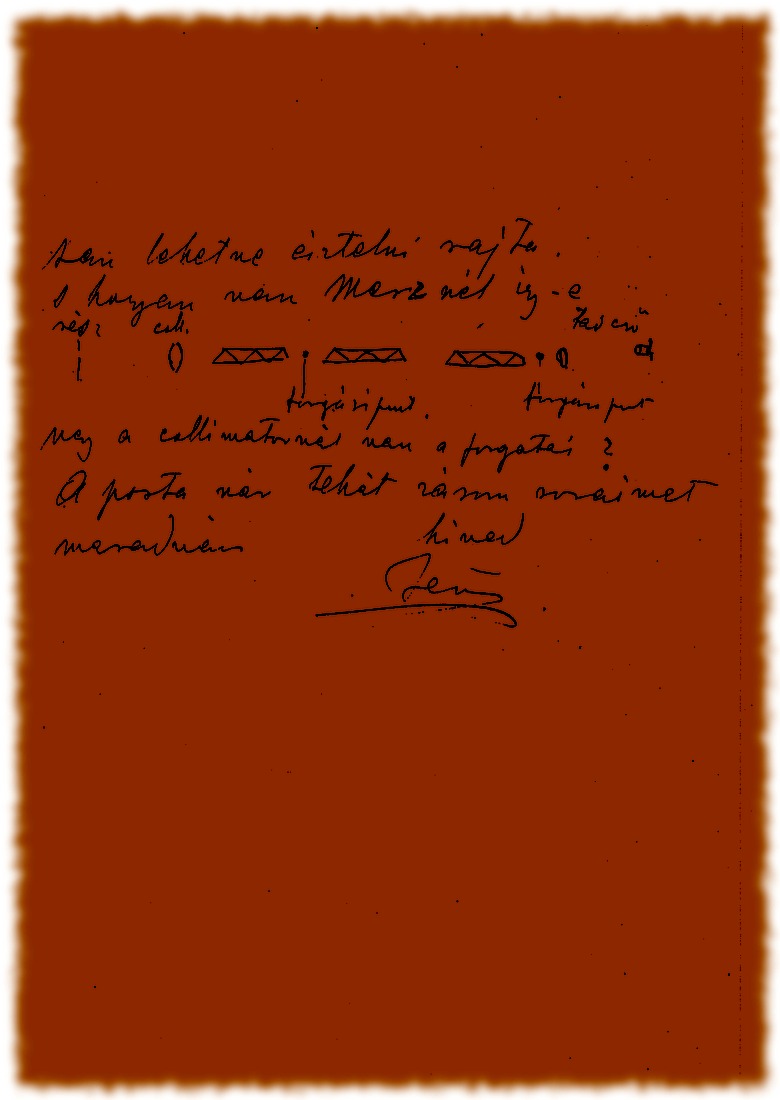 lehetne értelni rajta.
S hogyan van Merznél így-e
rés coll. Távcső
forgási punt. forgási punt
vagy a collimatornál van a forgatás?
A posta vár tehát zárom soraimat
maradván híved
Jenő